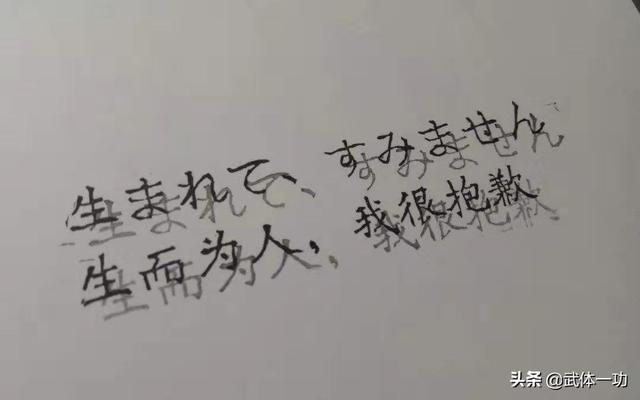 生まれて、すみません
生而为人，我很抱歉
头条 @武体一功